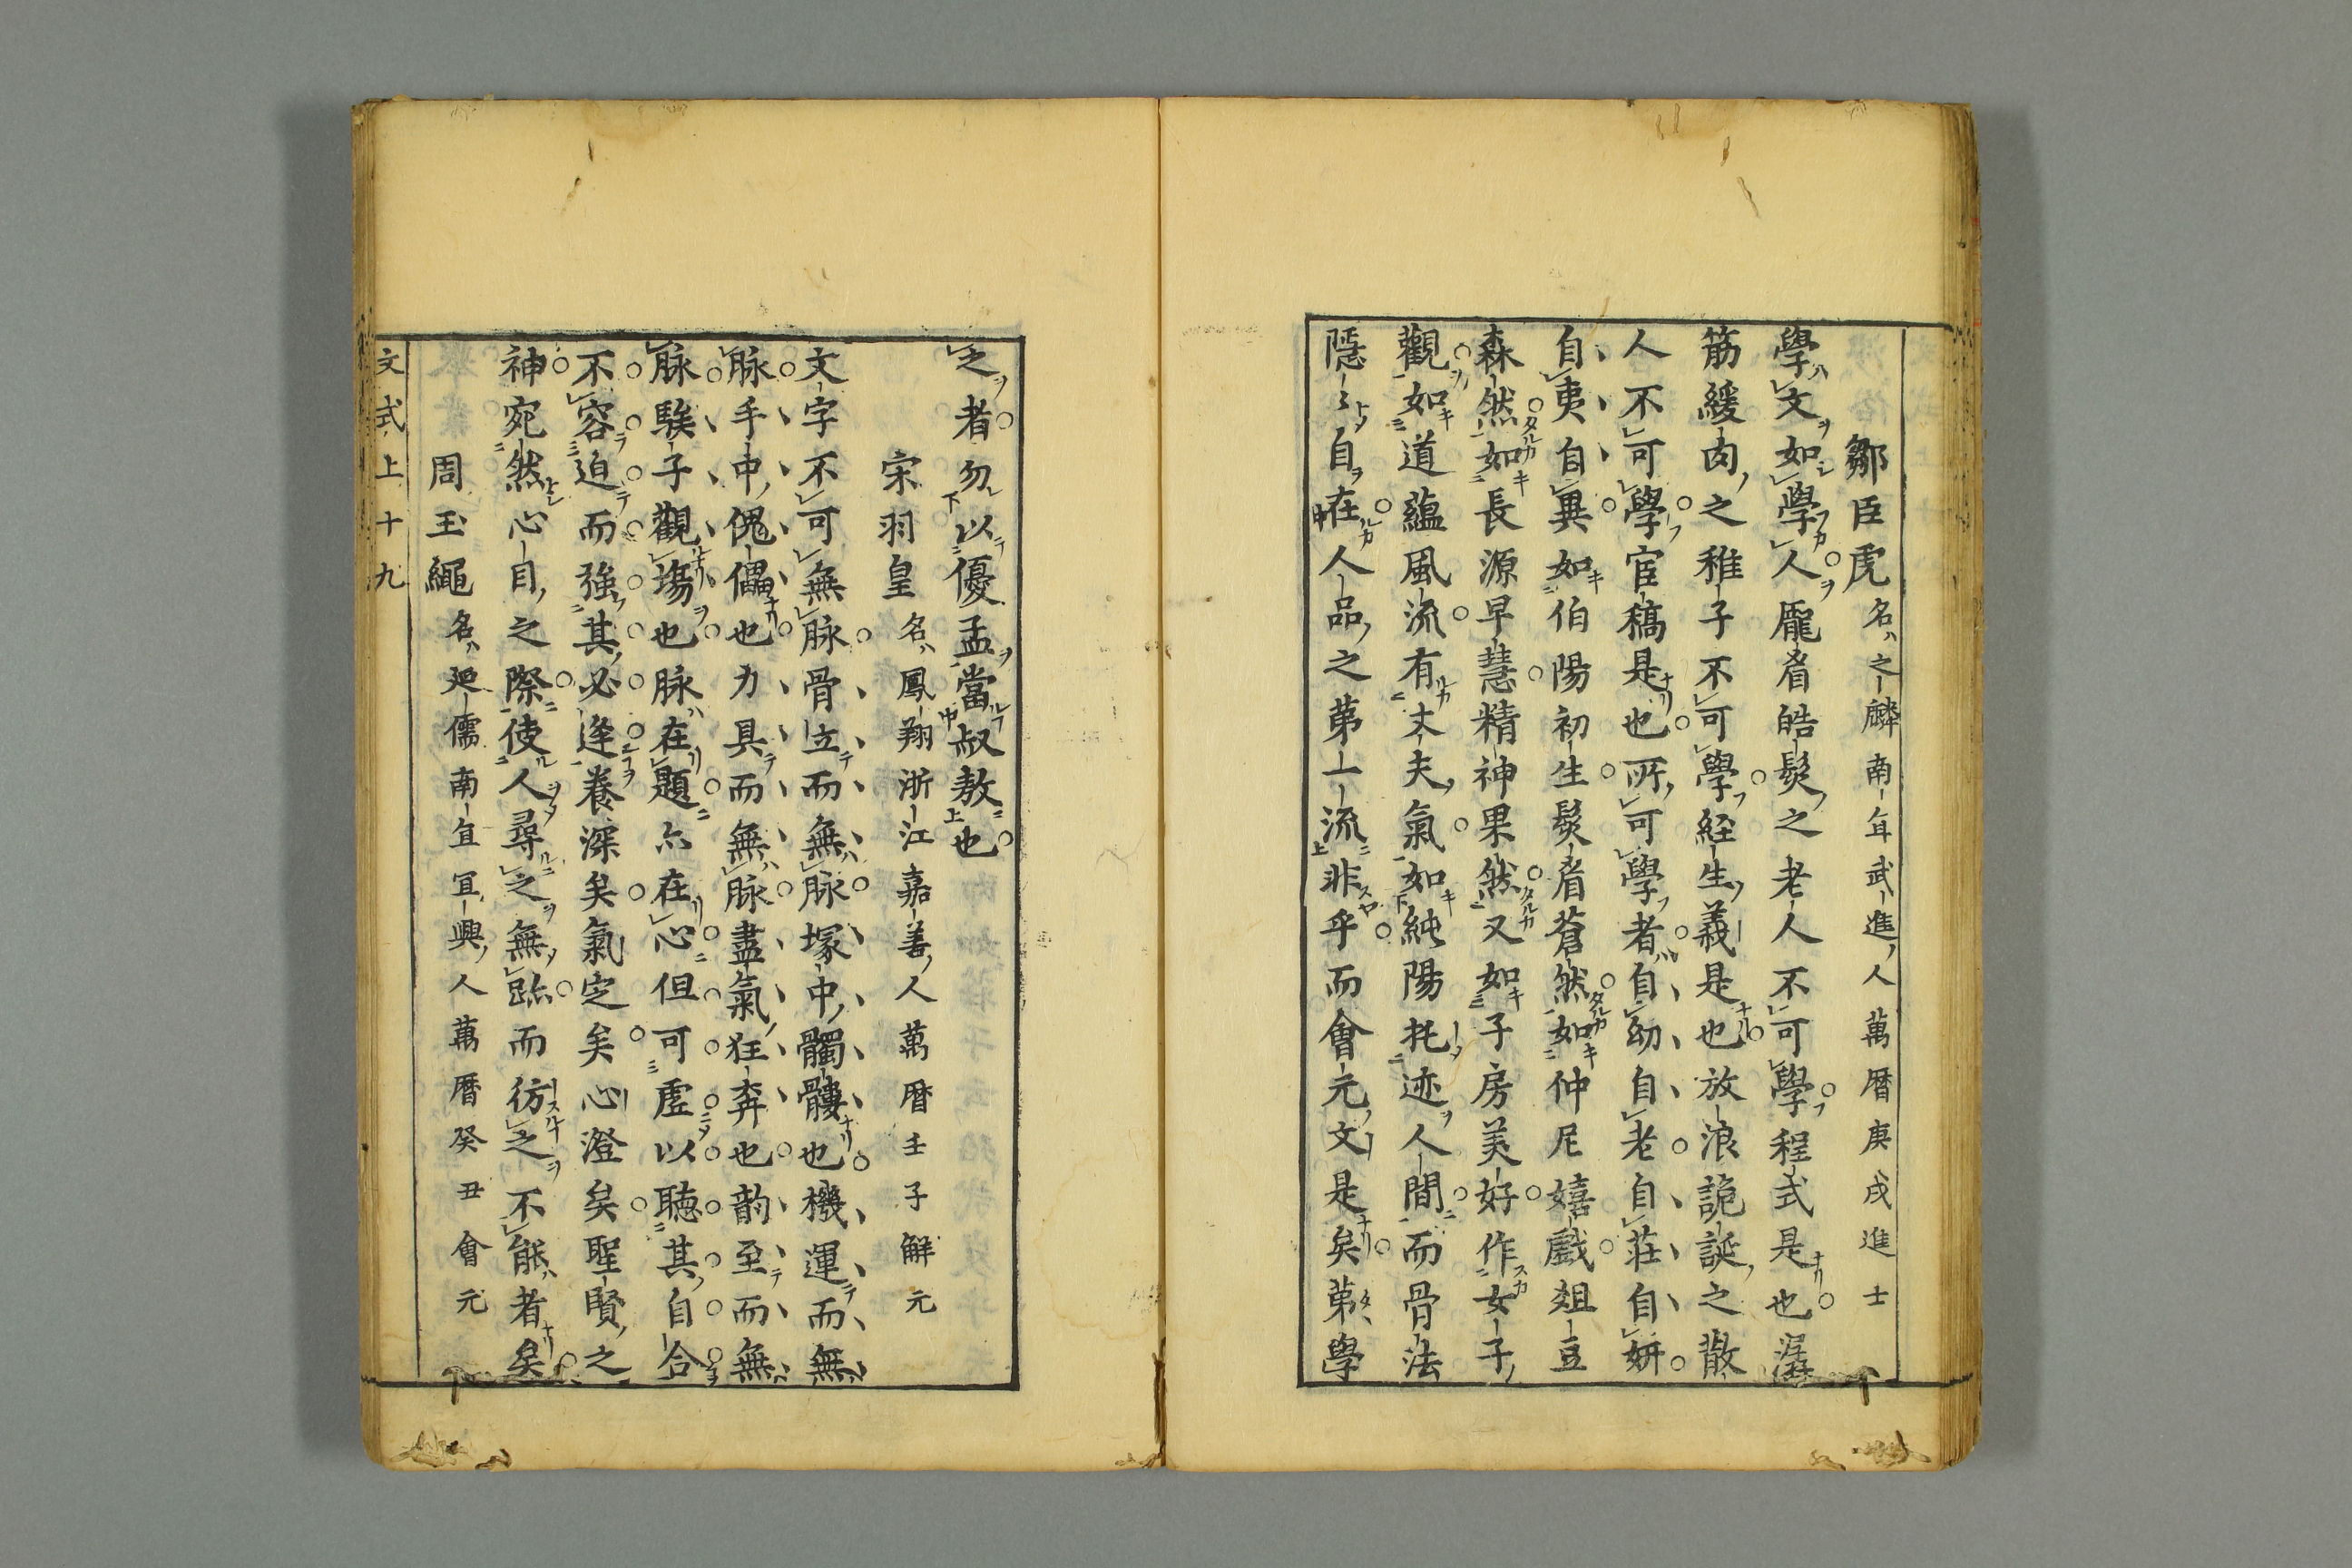 鄒臣虎名之麟南直武進人萬曆庚戌進士
學文如學人龐眉皓髮之老人不可學程式是也潺
筋緩肉之稚子不可學経生義是也放浪詭誕之散
人不可學宦稿是也所可學者自幼自老自莊自妍
自夷自異如伯陽初生髮眉蒼然如仲尼嬉戲俎豆
森然如長源早慧精神果然又如子房美好作女子
觀如道蘊風流有丈夫氣如純陽托迹人間而骨法
隱〻自在人品之第一流非乎而會元文是矣第學
之者勿以優孟當叔敖也
宋羽皇名鳳翔浙江嘉善人萬曆壬子解元
文字不可無脉骨立而無脉塚中髑髏也機運而無
脉手中傀儡也力具而無脉盡氣狂奔也韵至而無
脉騃子觀場也脉在題亦在心但可虛以聽其自合
不容迫而強其必逢養深矣氣定矣心澄矣聖賢之
神宛然心目之際使人尋之無跡而彷之不能者矣
周玉繩名延儒南直宜興人萬曆癸丑會元
文式上十九